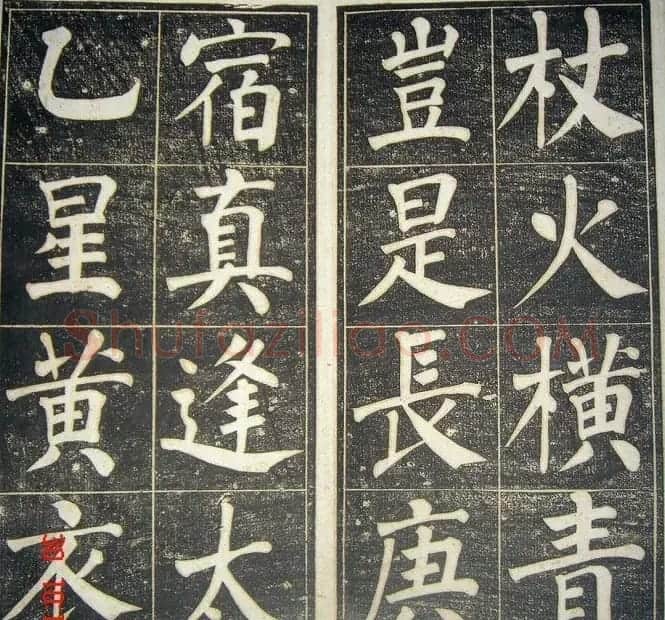 杖火橫青
豈是長庚
宿真逢太
乙星黃衣
Shufaziliao.COM